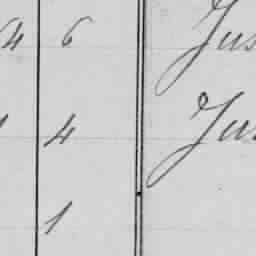 4 6 Jus
4 Jus
1